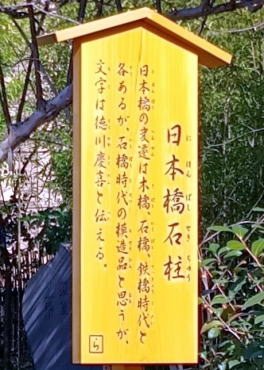 日本橋石柱
にほんばしせきちゅう
日本橋の変遷は木橋、石橋、鉄橋時代と
各あるが、石橋時代の模造品と思うが、
文字は徳川慶喜と伝える。
ら